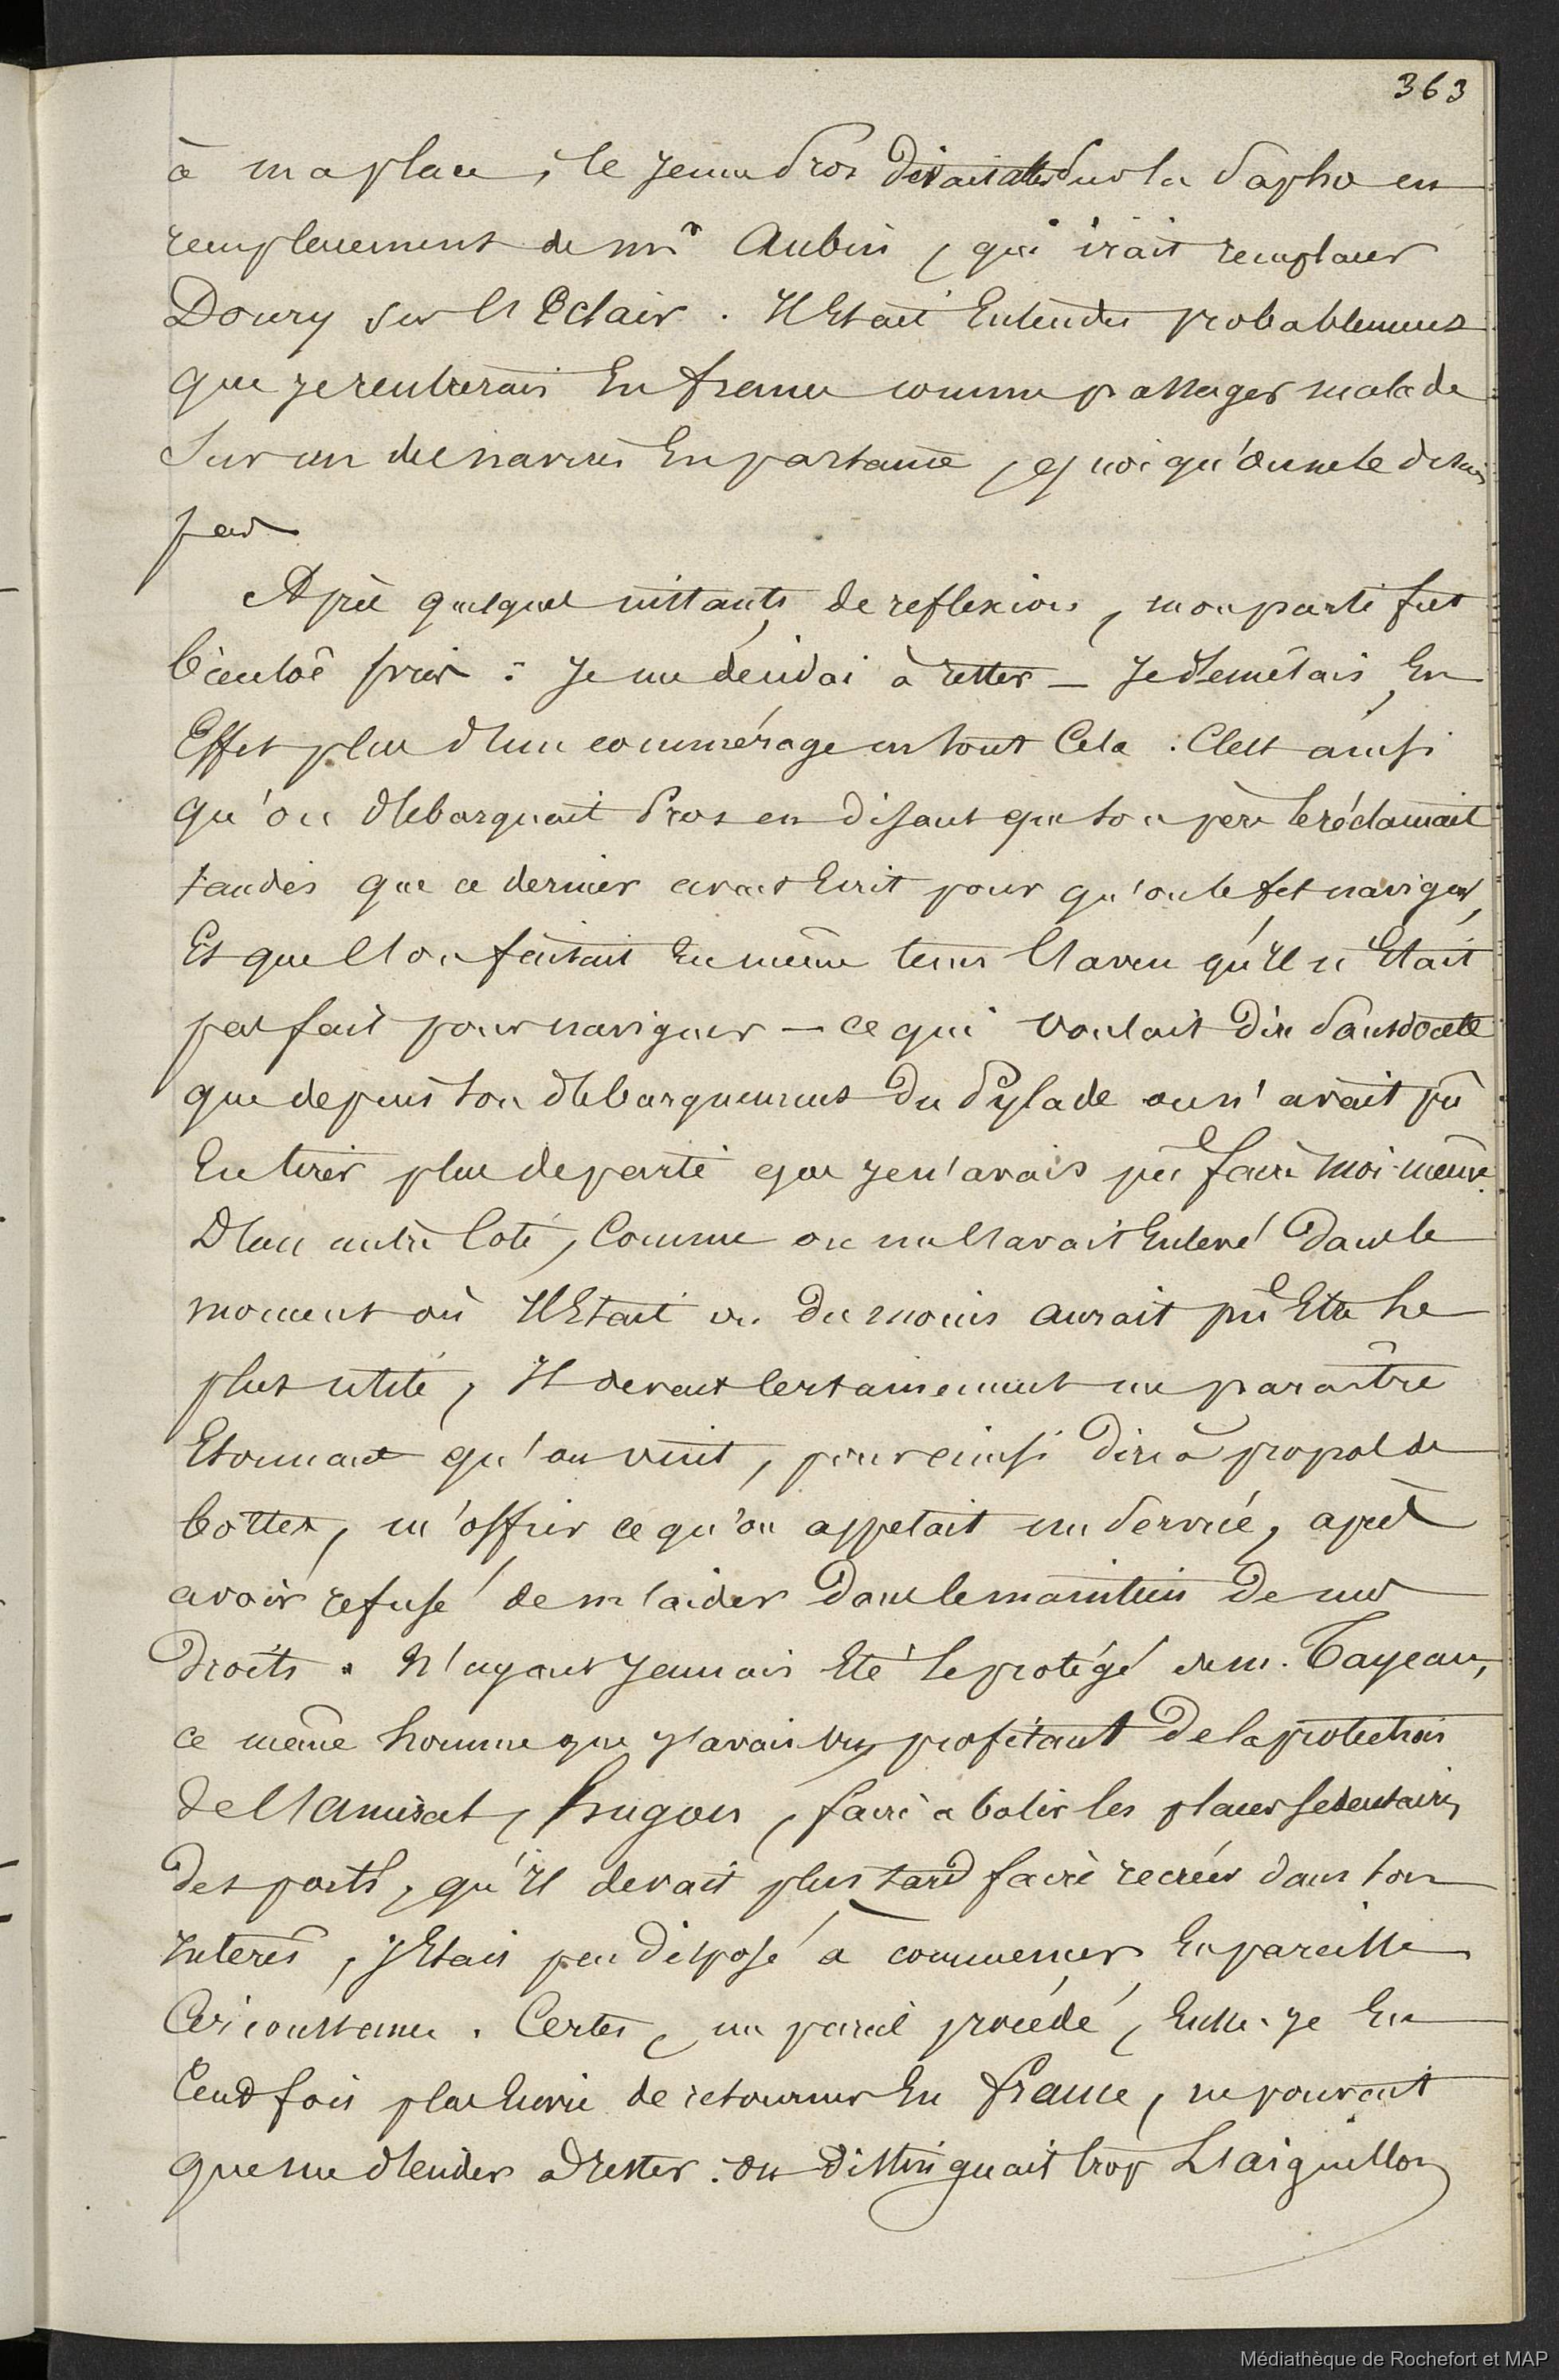 363
à ma place, le jeune Pros devait aller sur la Sapho en
remplacement de mr Aubin, qui irait remplacer
Doury sur l'Eclair. Il Etait Entendu probablement
que je rentrerais En france comme passager malade
Sur un des navires En partance, quoiqu'on ne le disait
pas
Après quelques instants de reflexion, mon parti fut
bientôt pris : Je me décidai à rester — Je démêlais En
Effet plus d'un commérage en tout Cela. C'est ainsi
qu'on débarquait Pros en disant que son père le réclamait
tandis que ce dernier avait Ecrit pour qu'on le fit naviguer,
Et que l'on faisait En même tems l'aveu qu'Il n'Etait
pas fait pour naviguer — ce qui voulait dire Sans doute
que depuis son débarquement du Pylade on n'avait pû
En tirer plus de parti que je n'avais pû faire moi-même.
D'un autre Coté, Comme on me l'avait Enlevé dans le
moment où Il Etait ou du moins aurait pû Etre le
plus utile, Il devait Certainement me paraître
Etonnant qu'on vint, pour ainsi dire à propos de
bottes, m'offrir ce qu'on appelait un Service, après
avoir refusé de m'aider dans le maintien de mes
droits. N'ayant jamais Eté le protégé de m. Tayeau,
ce même homme que j'avais vu, profitant de la protection
de l'amiral, hugon, faire abolir les places Sedentaires
des ports, qu'Il devait plus tard faire recréer dans son
Interêt, j'Etais peu disposé à commencer En pareille
Circonstance. Certes, un pareil procédé, Eussé-je Eu
Cend fois plus Envie de retourner En france, ne pouvait
que me décider à rester : on distinguait trop L'aiguillon
Médiathèque de Rochefort et MAP